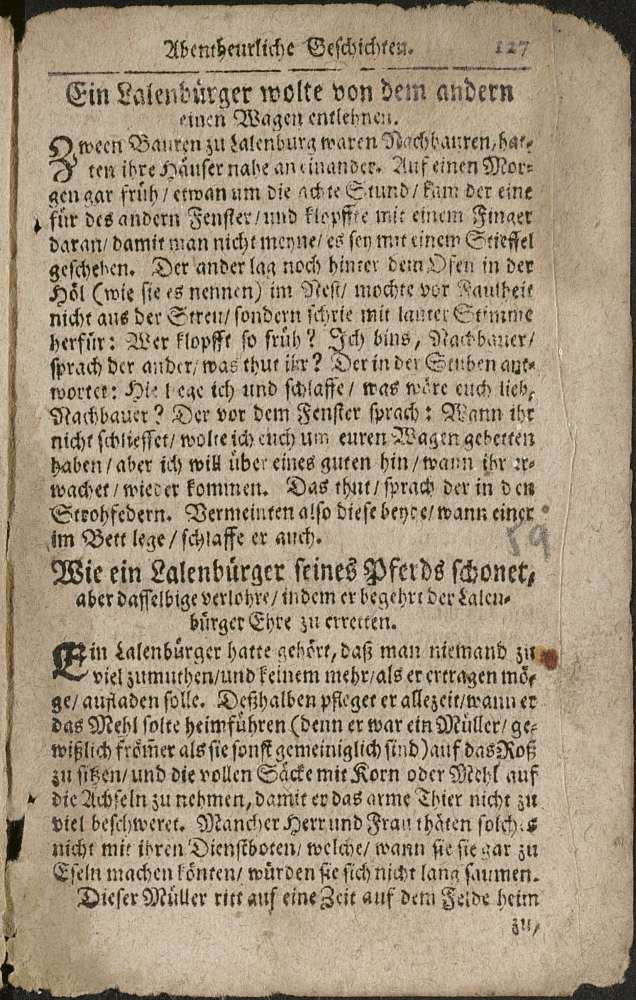 Abentheurliche Geschichten. 127
Ein Lalenbürger wolte von dem andern
einen Wagen entlehnen.
Zween Bauren zu Lalenburg waren Nachbauren, hat-
ten ihre Häuser nahe an einander. Auf einen Mor-
gen gar früh / etwan um die achte Stund / kam der eine
für des andern Fenster / und klopffte mit einem Finger
daran / damit man nicht meyne / es sey mit einem Stieffel
geschehen. Der ander lag noch hinter dem Ofen in der
Höl (wie sie es nennen) im Nest / mochte vor Faulheit
nicht aus der Streu / sondern schrie mit lauter Stimme
herfür: Wer klopfft so früh? Ich bins, Nachbauer /
sprach der ander / was thut ihr? Der in der Stuben ant-
wortet: Hie lege ich und schlaffe / was wäre euch lieb,
Nachbauer? Der vor dem Fenster sprach: Wann ihr
nicht schlieffet / wolte ich euch um euren Wagen gebetten
haben / aber ich will über eines guten hin / wann ihr er-
wachet / wieder kommen. Das thut / sprach der in den
Strohfedern. Vermeinten also diese beyde / wann einer
im Bett lege / schlaffe er auch.
59
Wie ein Lalenbürger seines Pferds schonet,
aber dasselbige verlohre / indem er begehrt der Lalen-
bürger Ehre zu erretten.
Ein Lalenbürger hatte gehört, daß man niemand zu
viel zumuthen / und keinem mehr / als er ertragen mö-
ge / aufladen solle. Deßhalben pfleget er allezeit / wann er
das Mehl solte heimführen (denn er war ein Müller / ge-
wißlich frömer als sie sonst gemeiniglich sind) auf das Roß
zu sitzen / und die vollen Säcke mit Korn oder Mehl auf
die Achseln zu nehmen, damit er das arme Thier nicht zu
viel beschweret. Mancher Herr und Frau thäten solches
nicht mit ihren Dienstboten / welche / wann sie sie gar zu
Eseln machen könten / würden sie sich nicht lang saumen.
Dieser Müller ritt auf eine Zeit auf dem Felde heim
zu,